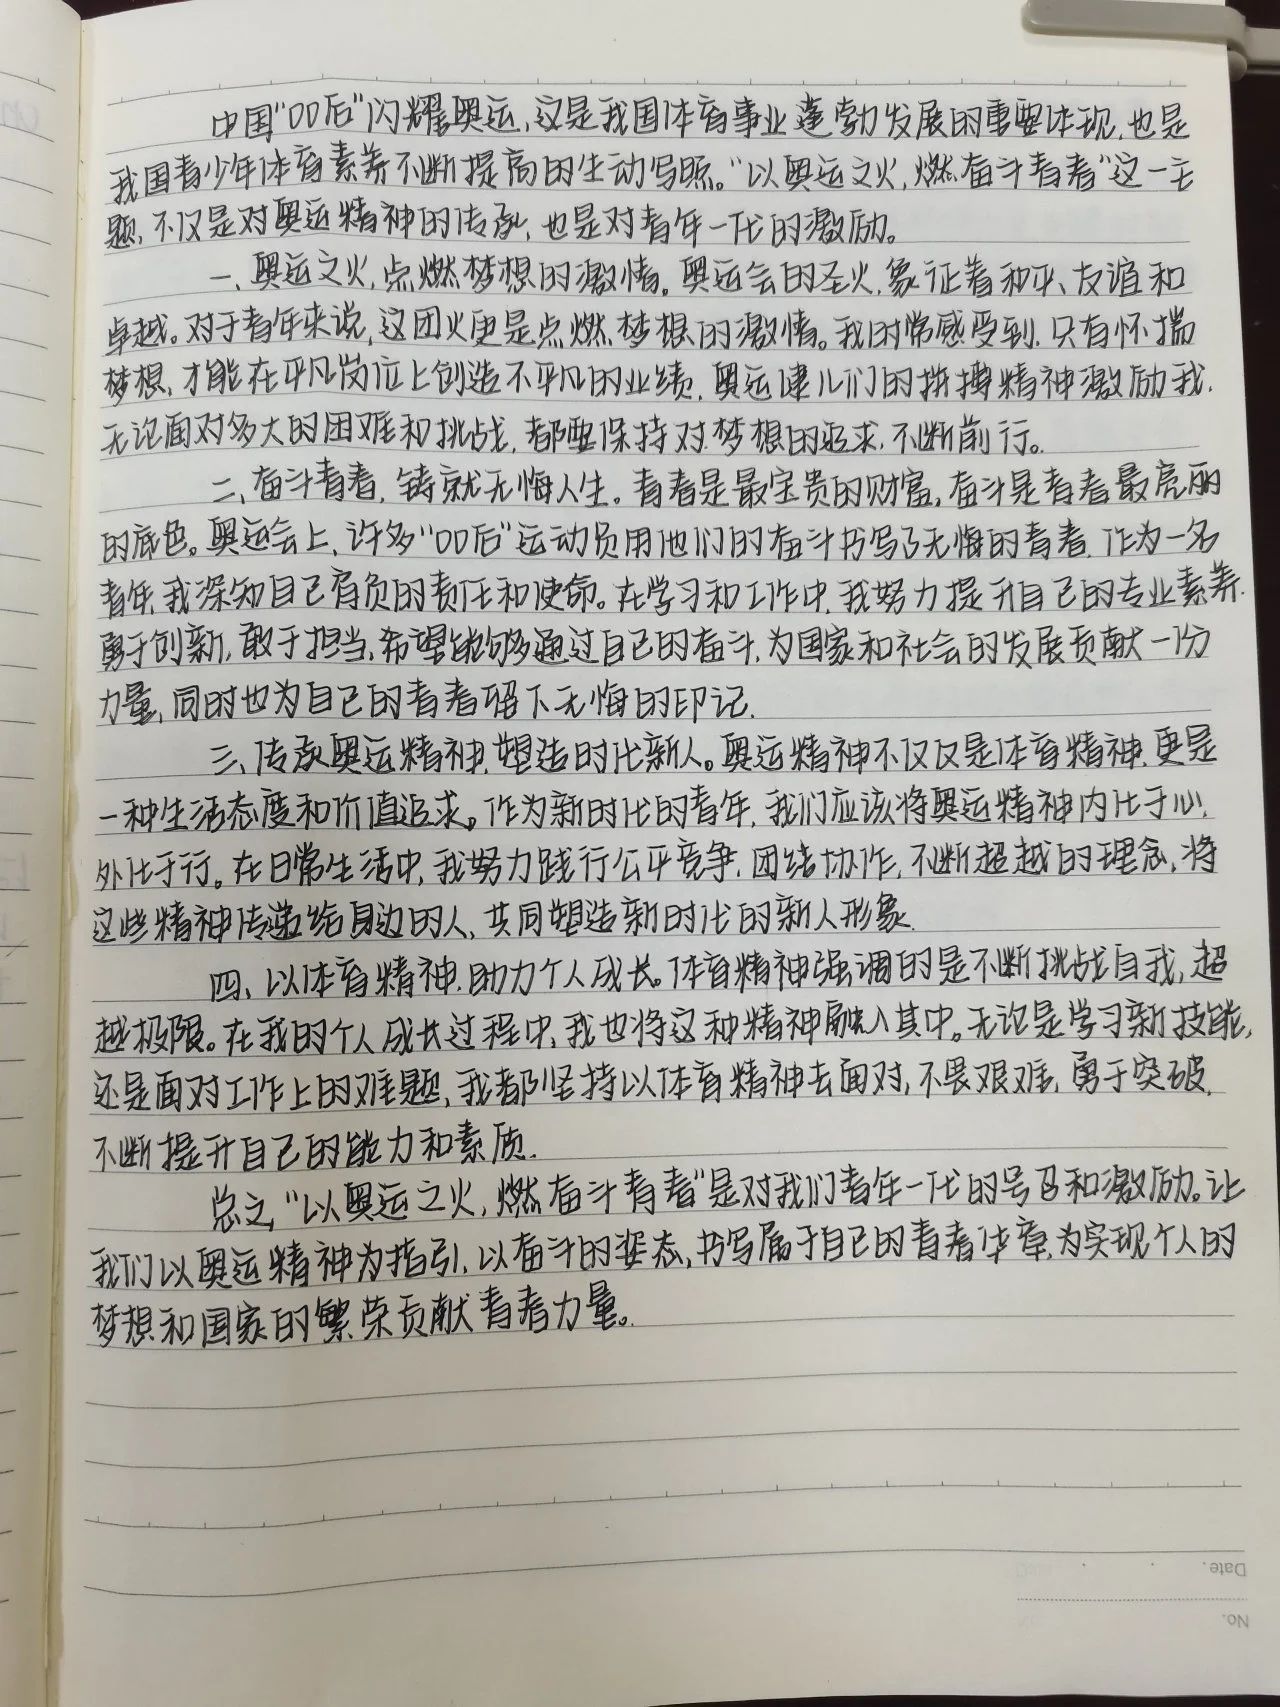 中国“00后”闪耀奥运，这是我国体育事业蓬勃发展的重要体现，也是
我国青少年体育素养不断提高的生动写照。“以奥运之火，燃奋斗青春”这一主
题，不仅是对奥运精神的传承，也是对青年一代的激励。
一、奥运之火，点燃梦想的激情。奥运会的圣火，象征着和平、友谊和
卓越。对于青年来说，这团火更是点燃梦想的激情。我时常感受到，只有怀揣
梦想，才能在平凡岗位上创造不平凡的业绩，奥运健儿们的拼搏精神激励我，
无论面对多大的困难和挑战，都要保持对梦想的追求，不断前行。
二、奋斗青春，铸就无悔人生。青春是最宝贵的财富，奋斗是青春最亮丽
的底色。奥运会上，许多“00后”运动员用他们的奋斗书写了无悔的青春，作为一名
青年，我深知自己肩负的责任和使命。在学习和工作中，我努力提升自己的专业素养，
勇于创新，敢于担当，希望能够通过自己的奋斗，为国家和社会的发展贡献一份
力量，同时也为自己的青春留下无悔的印记．
三、传承奥运精神，塑造时代新人。奥运精神不仅仅是体育精神，更是
一种生活态度和价值追求。作为新时代的青年，我们应该将奥运精神内化于心，
外化于行。在日常生活中，我努力践行公平竞争，团结协作，不断超越的理念，将
这些精神传递给身边的人，共同塑造新时代的新人形象．
四、以体育精神，助力个人成长。体育精神强调的是不断挑战自我，超
越极限。在我的个人成长过程中，我也将这种精神融入其中。无论是学习新技能，
还是面对工作上的难题，我都坚持以体育精神去面对，不畏艰难，勇于突破，
不断提升自己的能力和素质．
总之，“以奥运之火，燃奋斗青春”是对我们青年一代的号召和激励。让
我们以奥运精神为指引，以奋斗的姿态，书写属于自己的青春华章，为实现个人的
梦想和国家的繁荣贡献青春力量。
Date.
No.